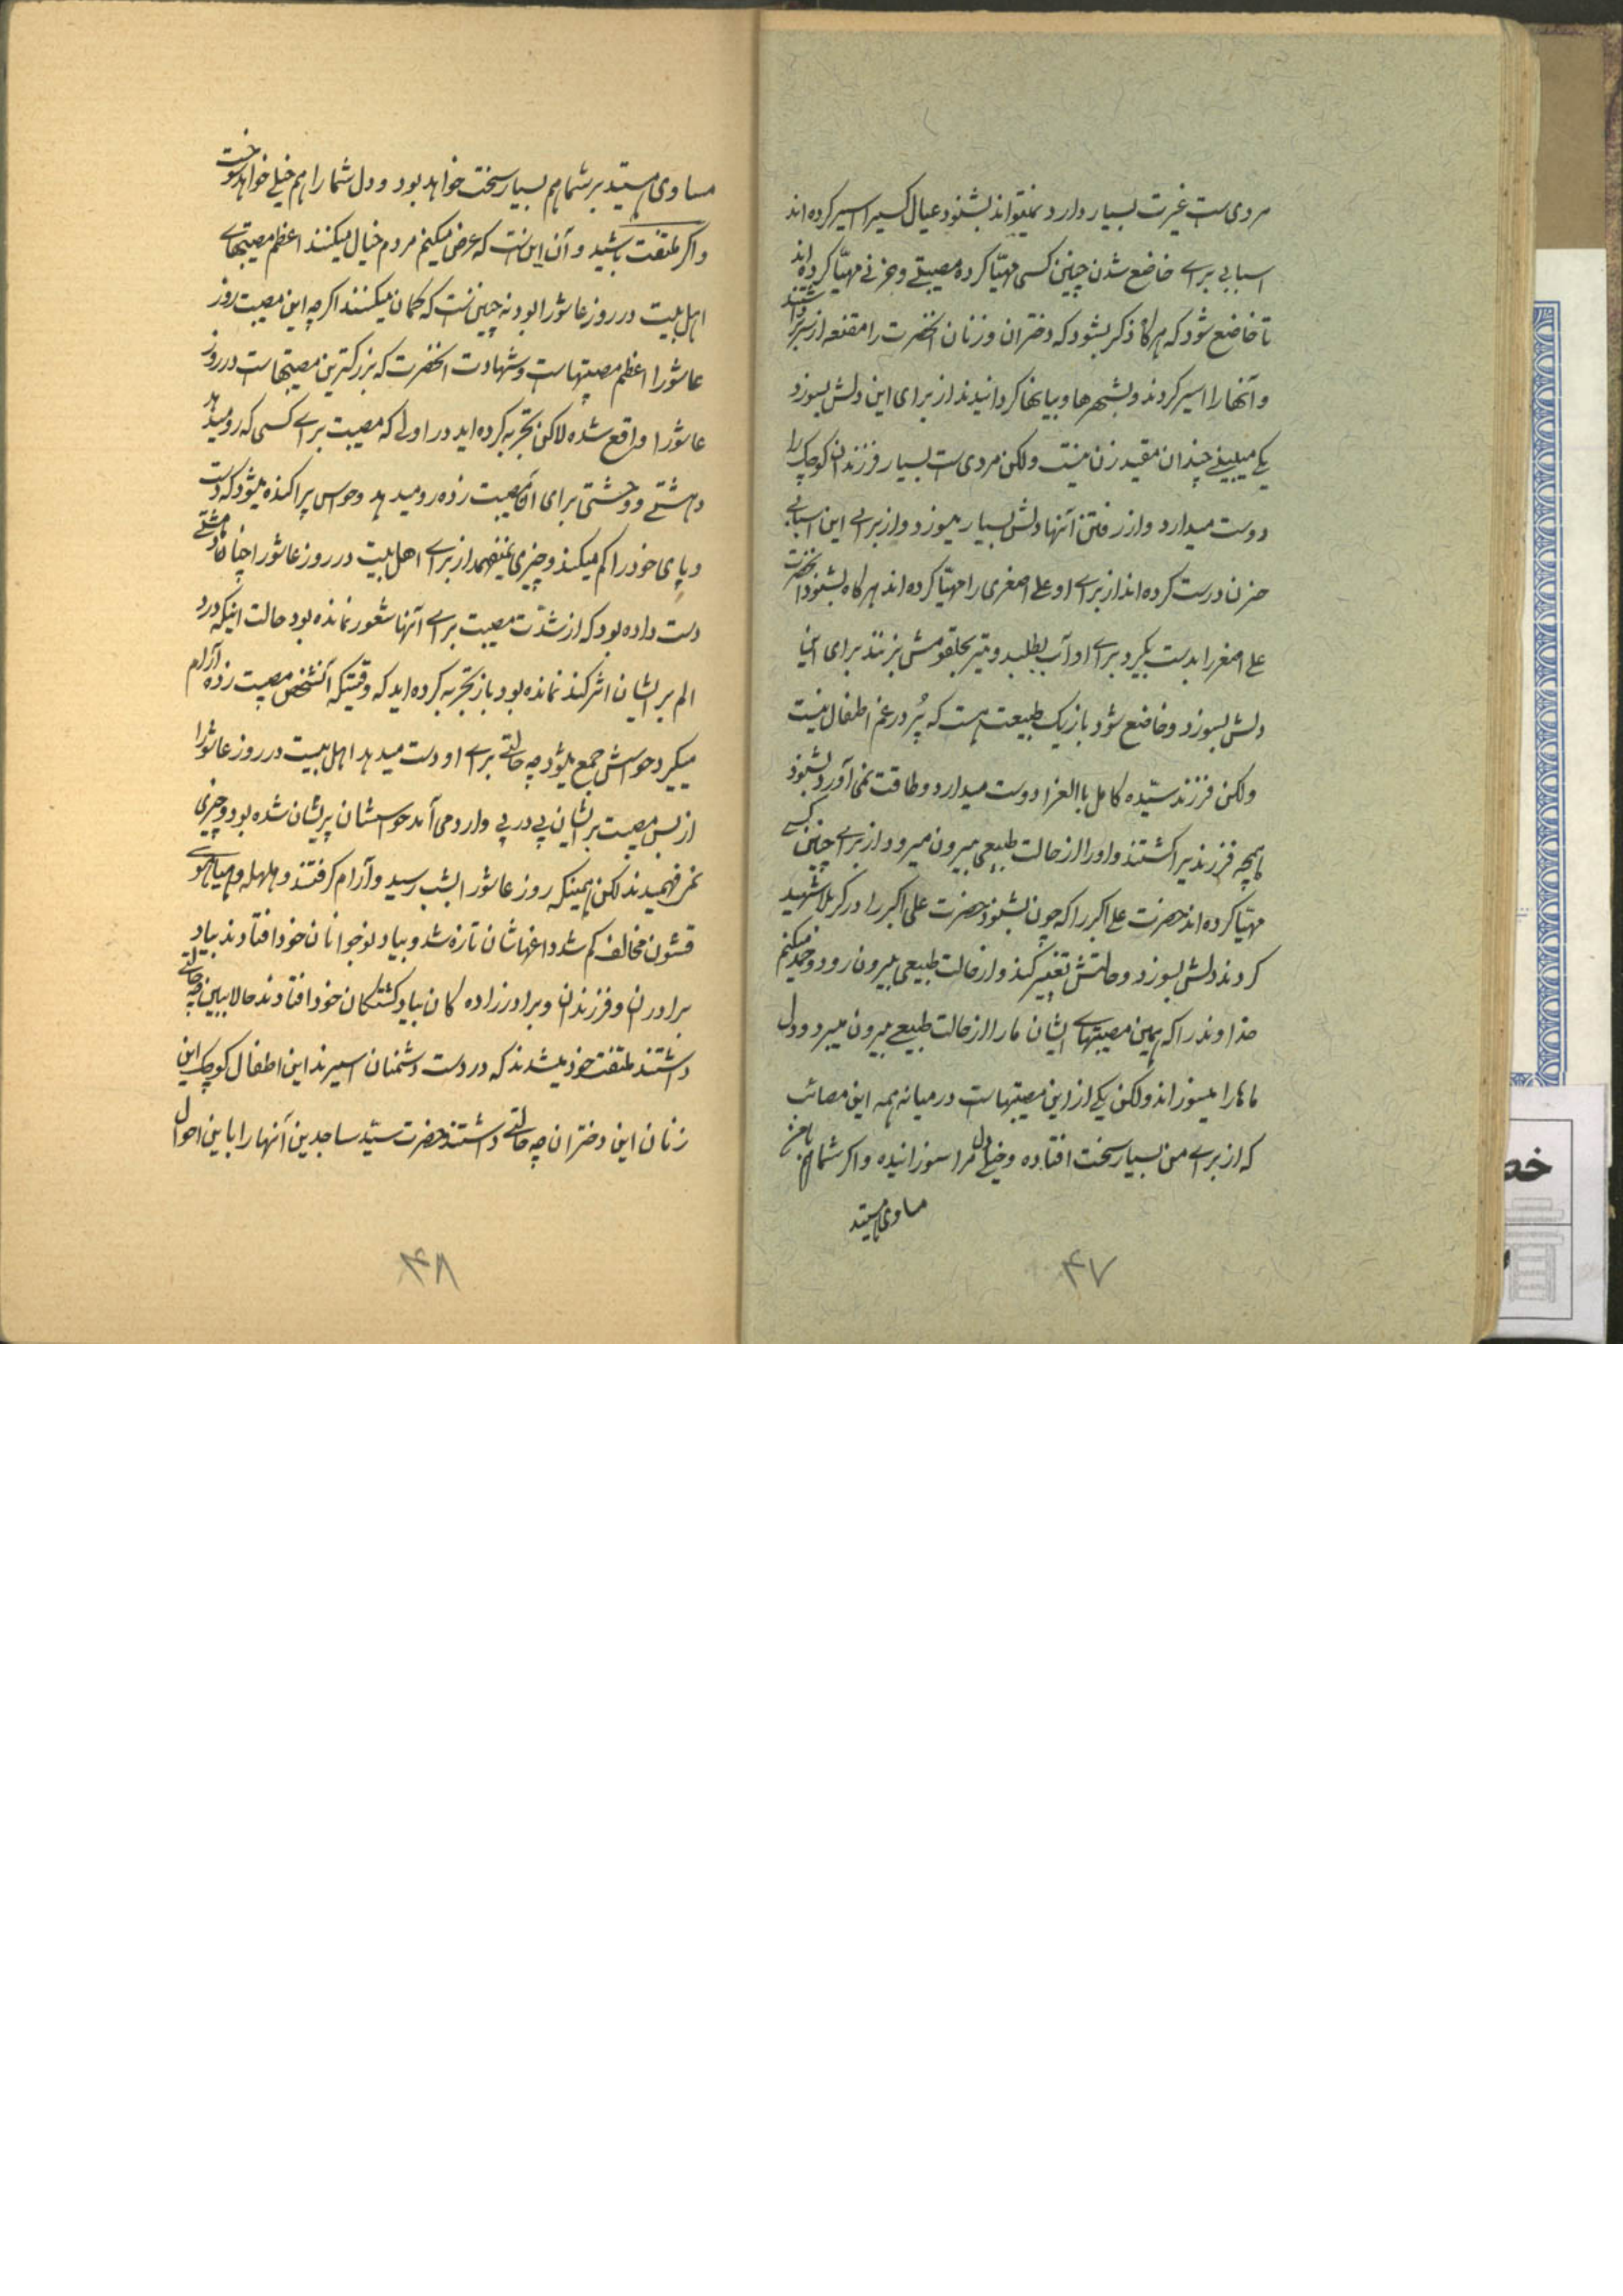 مردی ست غیرت بسیار دارد نمیتواند بشنود عیال کسیرا اسیر کرده اند
اسبابی برای خاضع شدن چنین کسی مهیّا کرده مصیبتی و حزنی مهیّا کرده اند
تا خاضع شود که هرگاه ذکر بشود که دختران و زنان آنحضرت را مقنعه از سر برداشتند
و آنها را اسیر کردند و بشهرها و بیابانها گردانیدند از برای این دلش بسوزد
یکی میبینی چندان مقید زن نیست ولکن مردی ست بسیار فرزندان کوچک را
دوست میدارد و از رفتن آنها دلش بسیار میسوزد و از برای این اسبابی
حزن درست کرده اند از برای او علی اصغری را مهیّا کرده اند هرگاه بشنود آنحضرت
علی اصغر را بدست بگیرد برای او آب بطلبد و تیر بحلقومش بزنند برای این
دلش بسوزد و خاضع شود باز یک طبیعت هست که پُر در غم اطفال نیست
ولکن فرزند سیّده کامل باالغرا دوست میدارد و طاقت نمی آورد بشنود
همچه فرزندیرا کشتند و او را از حالت طبیعی بیرون میرود از برای چنین کسی
مهیّا کرده اند حضرت علی اکبر را که چون بشنود حضرت علی اکبر را در کربلا شهید
کردند دلش بسوزد و حالتش تغییر کند و از حالت طبیعی بیرون رود و حمد میکنم
خداوند را که همین مصیبتهای ایشان ما را از حالت طبیعی بیرون میبرد و دل
ماها را میسوزاند ولکن یکی از این مصیبتهاست در میانه همه این مصائب
که از برای من بسیار سخت افتاده و خیلی دل مرا سوزانیده و اگر شما هم با من
مساوی هستید
۴۷
مساوی هستید بر شما هم بسیار سخت خواهد بود و دل شما را هم خیلی خواهد سوخت
و اگر ملتفت باشید و آن این ست که عرض میکنم مردم خیال میکنند اعظم مصیبتهای
اهل بیت در روز عاشورا بود نه چنین ست که گمان میکنند اگر چه این مصیبت روز
عاشورا اعظم مصیبتهاست و شهادت آنحضرت که بزرگترین مصیبتهاست در روز
عاشورا واقع شده لاکن تجربه کرده اید در اولی که مصیبت برای کسی که رو میدهد
دهشتی و وحشتی برای آن مصیبت زده رو میدهد و حواس پراکنده میشود که دست
و پای خود را گم میکند و چیزی نمیفهمد از برای اهل بیت در روز عاشورا چنان دهشتی
دست داده بود که از شدّت مصیبت برای آنها شعور نمانده بود حالت اینکه درد
الم بر ایشان اثر کند نمانده بود باز تجربه کرده اید که وقتیکه آنشخص مصیبت زده آرام
میگیرد حواسش جمع میشود چه حالتی برای او دست میدهد اهل بیت در روز عاشورا
از بس مصیبت بر ایشان پی در پی وارد می آمد حواسشان پریشان شده بود و چیزی
نمیفهمیدند لکن همینکه روز عاشورا بشب رسید و آرام گرفتند و هلهله و هیاهوی
قشون مخالف کم شد داغهاشان تازه شد و بیاد نوجوانان خود افتادند بیاد
برادران و فرزندان و برادرزاده گان بیاد کشتگان خود افتادند حالا ببین چه حالتی
داشتند ملتفت خود میشدند که در دست دشمنان اسیرند این اطفال کوچک این
زنان این دختران چه حالتی داشتند حضرت سیّد ساجدین آنها را باین احوال
۴۸
خص